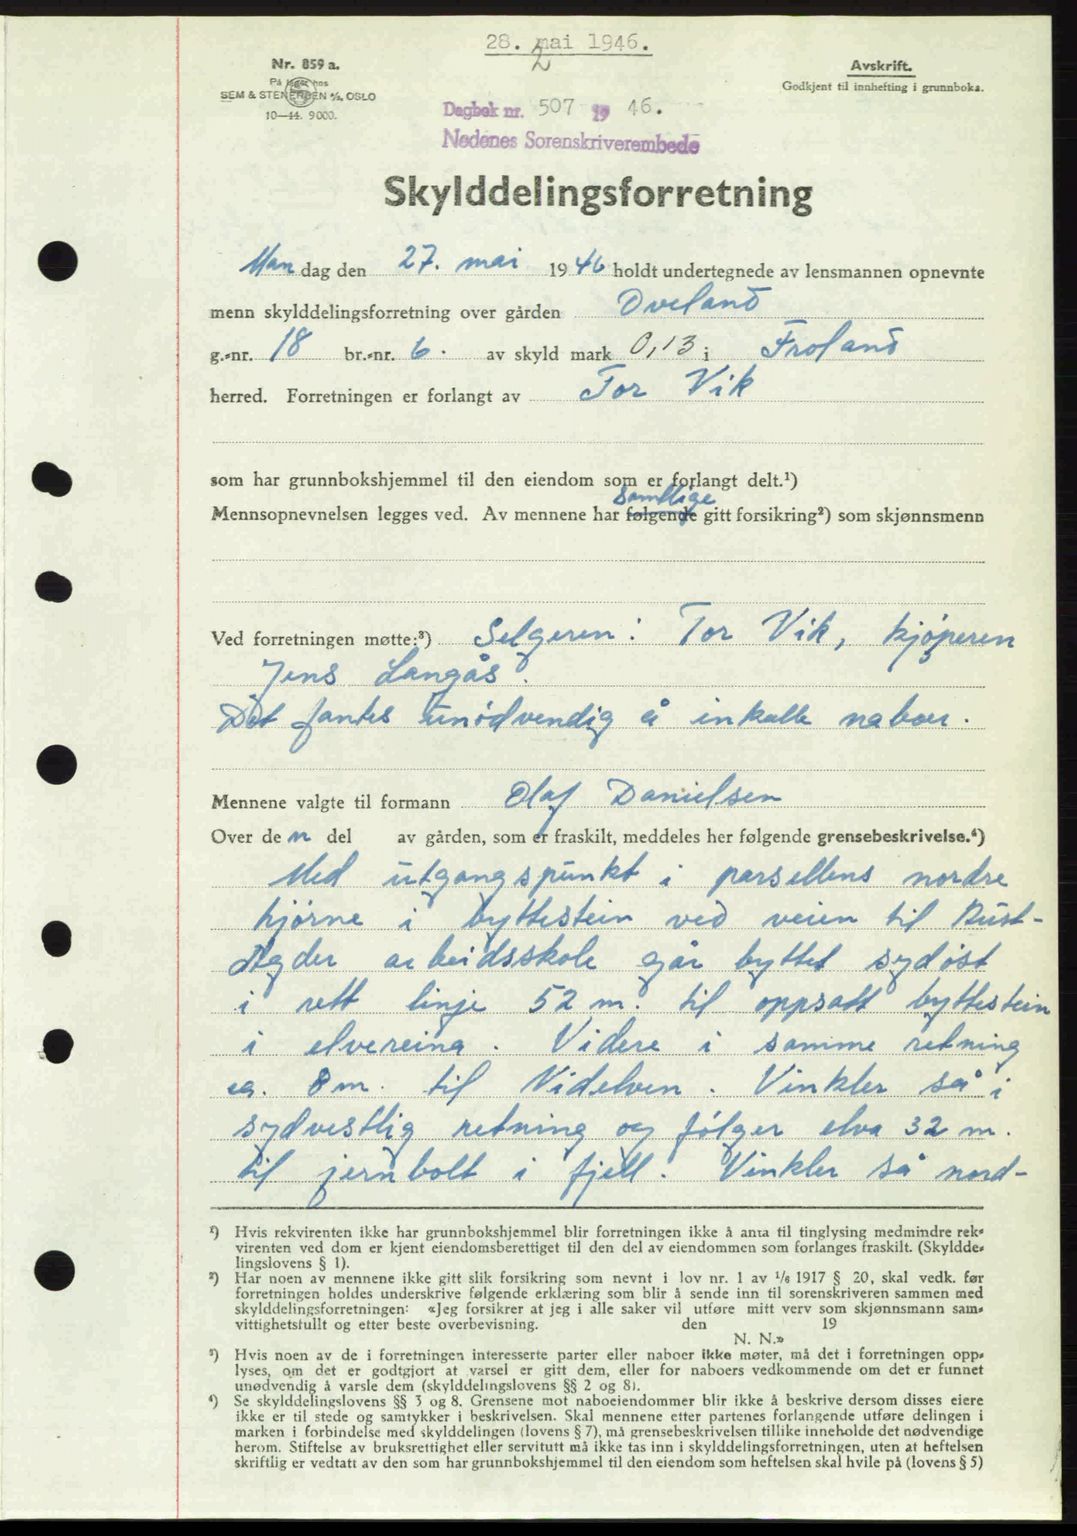 28. mai 1946.
2
Nr. 859 a.
På lager hos
SEM & STENERSEN A/S, OSLO
10—44. 9000.
Avskrift.
Godkjent til innhefting i grunnboka.
Dagbok nr. 507 19 46.
Nedenes Sorenskriverembede
Skylddelingsforretning
Mandag den 27. mai 1946 holdt undertegnede av lensmannen opnevnte
menn skylddelingsforretning over gården Oveland
g.-nr. 18 br.-nr. 6. av skyld mark 0,13 i Froland
herred. Forretningen er forlangt av Tor Vik
som har grunnbokshjemmel til den eiendom som er forlangt delt.¹)
samtlige
Mennsopnevnelsen legges ved. Av mennene har følgende gitt forsikring²) som skjønnsmenn
Ved forretningen møtte:³) Selgeren: Tor Vik, kjøperen
Jens Langås.
Det fantes unødvendig å inkalle naboer.
Mennene valgte til formann Olaf Danielsen
Over den del av gården, som er fraskilt, meddeles her følgende grensebeskrivelse.⁴)
Med utgangspunkt i parsellens nordre
hjørne i byttestein ved veien til Aust-
Agder arbeidsskole går byttet sydøst
i rett linje 52 m. til oppsatt byttestein
i elvereina. Videre i samme retning
ca. 8 m. til Nidelven. Vinkler så i
sydvestlig retning og følger elva 32 m.
til jernbolt i fjell. Vinkler så nord-
¹) Hvis rekvirenten ikke har grunnbokshjemmel blir forretningen ikke å anta til tinglysing medmindre rek-
virenten ved dom er kjent eiendomsberettiget til den del av eiendommen som forlanges fraskilt. (Skyldde-
lingslovens § 1).
²) Har noen av mennene ikke gitt slik forsikring som nevnt i lov nr. 1 av 1/6 1917 § 20, skal vedk. før
forretningen holdes underskrive følgende erklæring som blir å sende inn til sorenskriveren sammen med
skylddelingsforretningen: «Jeg forsikrer at jeg i alle saker vil utføre mitt verv som skjønnsmann sam-
vittighetsfullt og etter beste overbevisning. den 19
N. N.»
³) Hvis noen av de i forretningen interesserte parter eller naboer ikke møter, må det i forretningen opp-
lyses, om det er godtgjort at varsel er gitt dem, eller for naboers vedkommende om det er funnet
unødvendig å varsle dem (skylddelingslovens §§ 2 og 8).
⁴) Se skylddelingslovens §§ 3 og 8. Grensene mot naboeiendommer blir ikke å beskrive dersom disses eiere
ikke er til stede og samtykker i beskrivelsen. Skal mennene etter partenes forlangende utføre delingen i
marken i forbindelse med skylddelingen (lovens § 7), må grensebeskrivelsen tillike inneholde det nødvendige
herom. Stiftelse av bruksrettighet eller servitutt må ikke tas inn i skylddelingsforretningen, uten at heftelsen
skriftlig er vedtatt av den som har grunnbokshjemmel til den eiendom som heftelsen skal hvile på (lovens § 5)